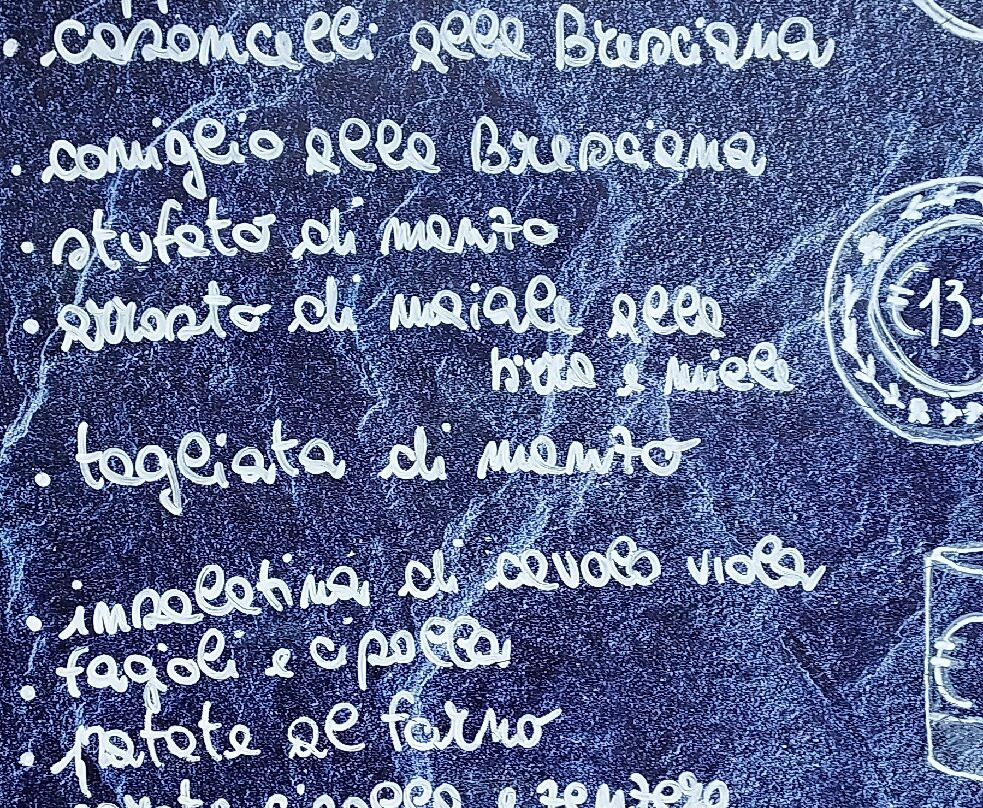 • casoncelli alla Bresciana
• coniglio alla Bresciana
• stufato di manzo
• arrosto di maiale alla
birra e miele
€13
• tagliata di manzo
• insalatina di cavolo viola
• fagioli e cipolla
• patate al forno
€